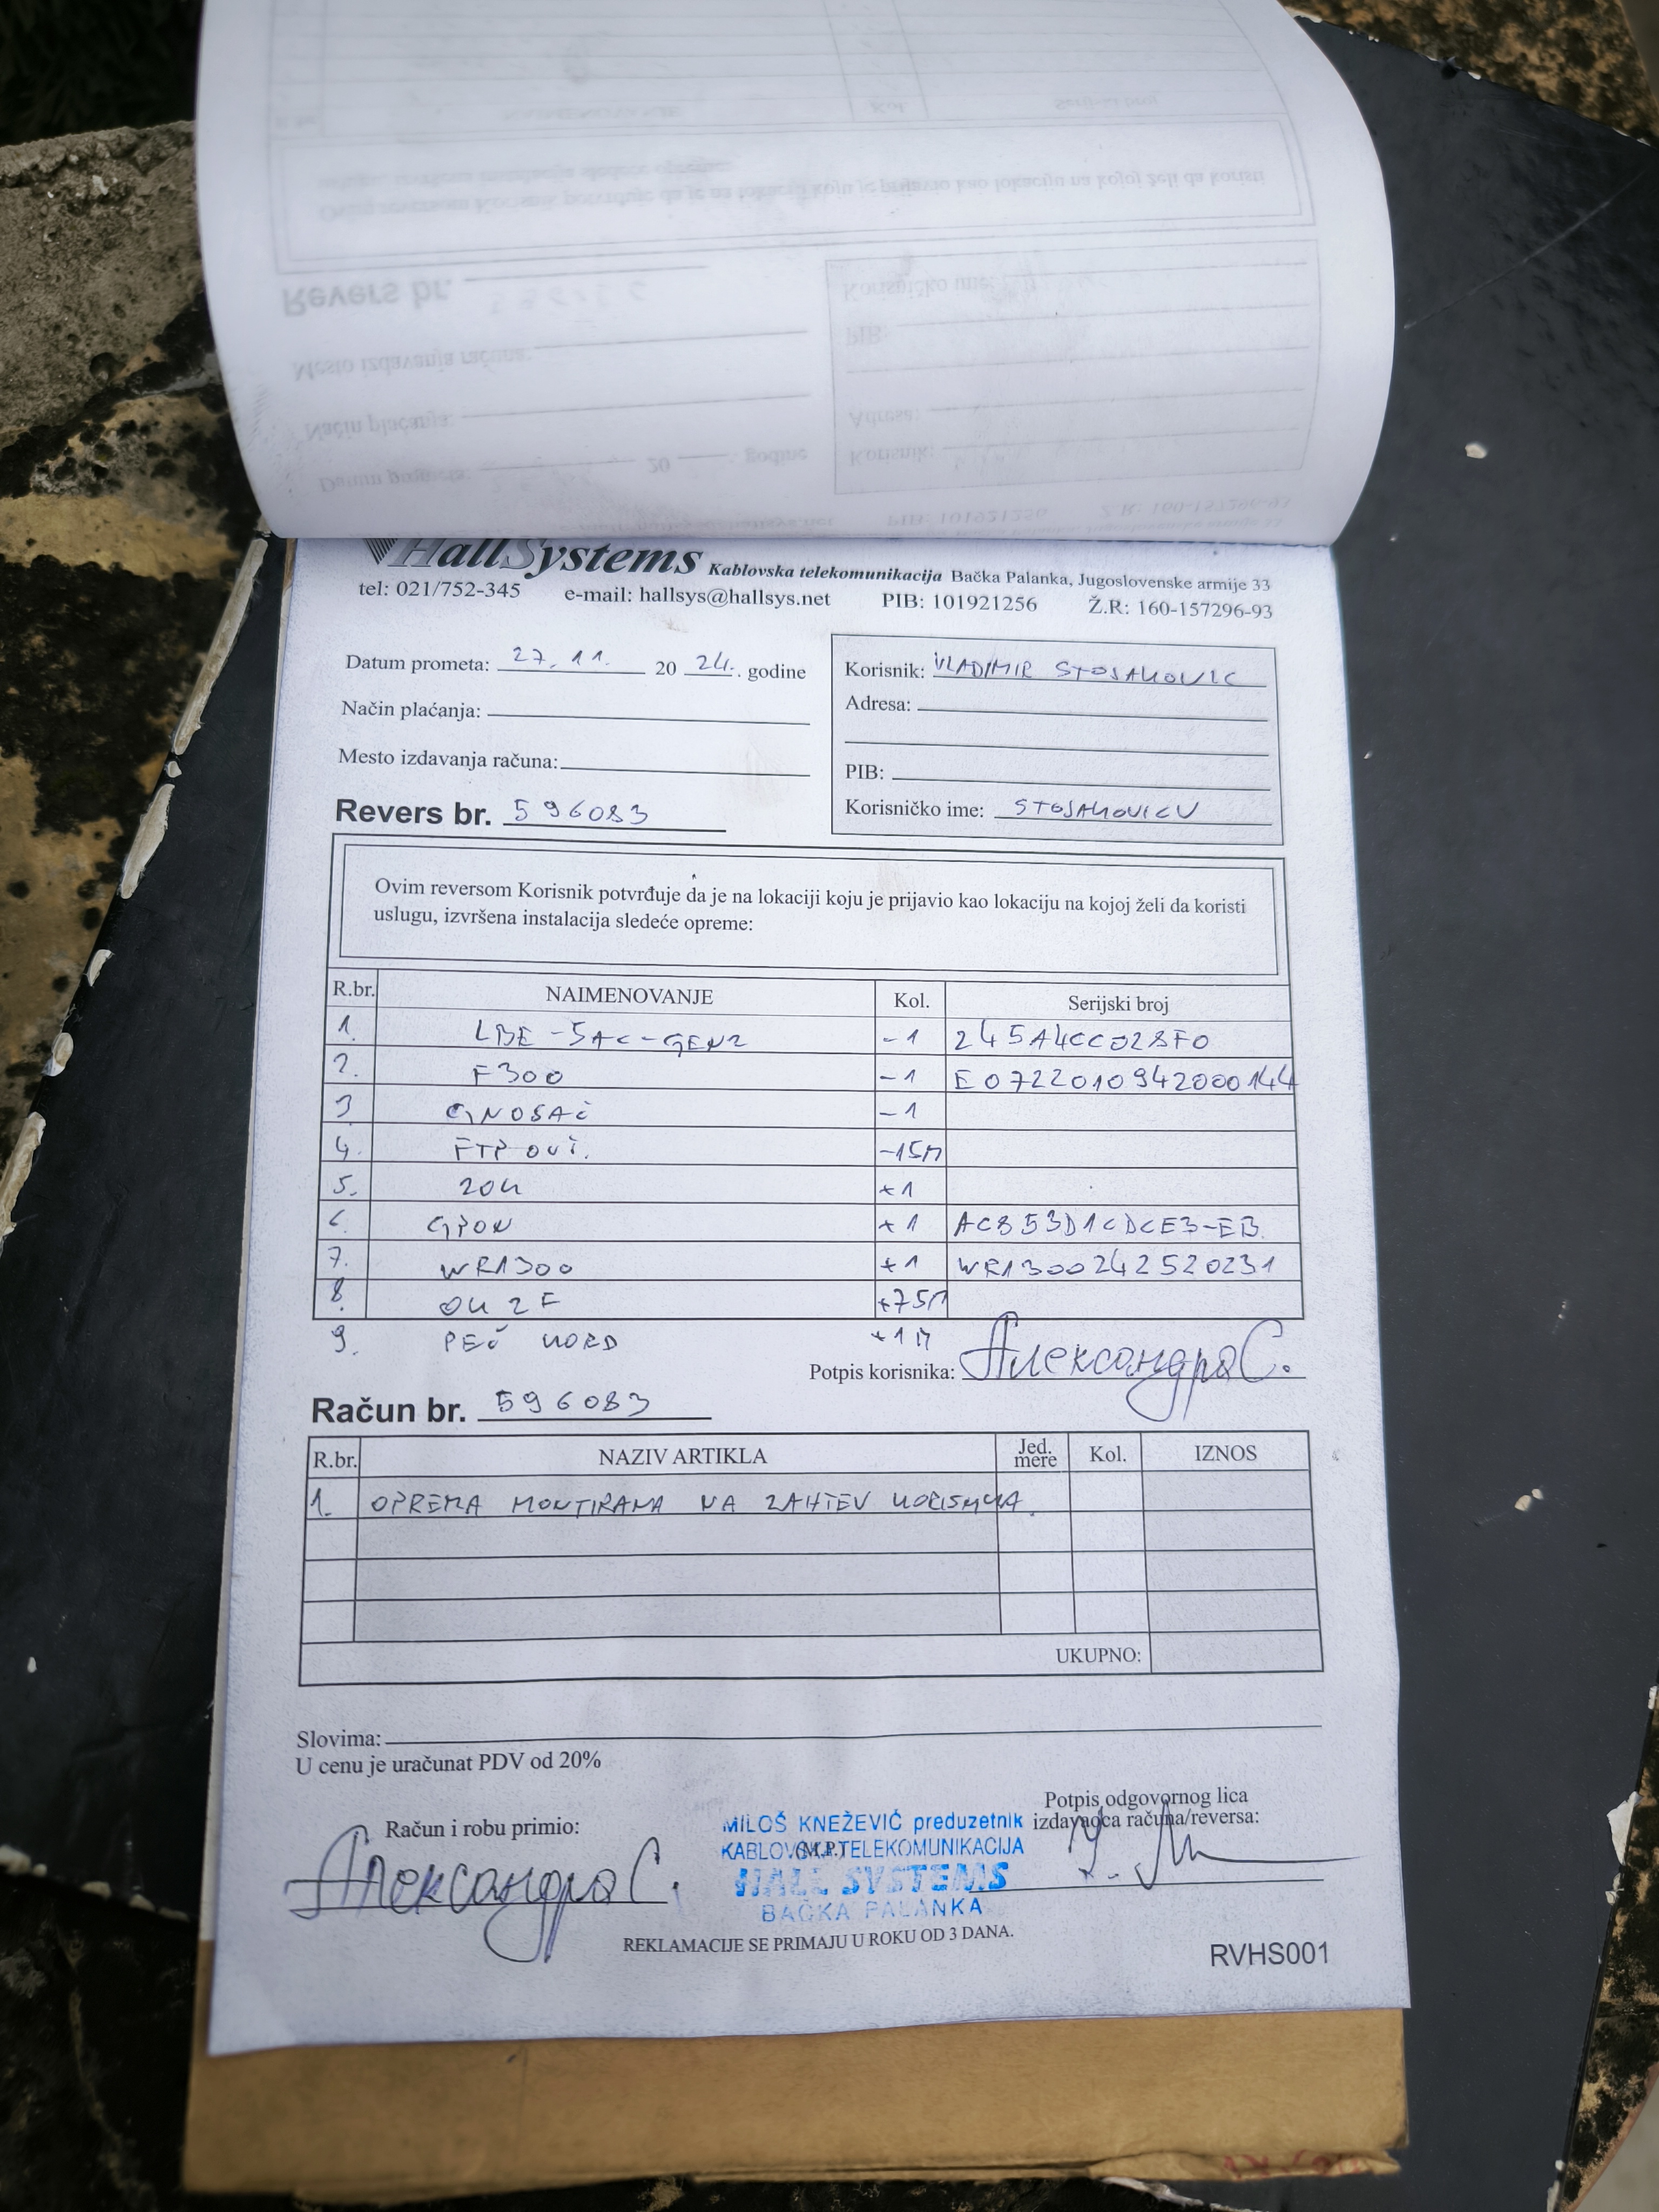 HallSystems Kablovska telekomunikacija Bačka Palanka, Jugoslovenske armije 33
tel: 021/752-345 e-mail: hallsys@hallsys.net PIB: 101921256 Ž.R: 160-157296-93
Datum prometa: 27.11. 20 24. godine
Način plaćanja:
Mesto izdavanja računa:
Revers br. 596083
Korisnik: VLADIMIR STOJANOVIC
Adresa:
PIB:
Korisničko ime: STOJANOVICV
Ovim reversom Korisnik potvrđuje da je na lokaciji koju je prijavio kao lokaciju na kojoj želi da koristi
uslugu, izvršena instalacija sledeće opreme:
R.br. NAIMENOVANJE Kol. Serijski broj
1. LBE-5AC-GEN2 -1 245A4CC028F0
2. F300 -1 E0722010942000144
3 GNOSAČ -1
4. FTP -15M
5. ZOK +1
6. GPON +1 AC853D1CDCE3-EB.
7. WR1300 +1 WR1300242520231
8. OK 2F +75M
9. PEČ KORD +1M
Potpis korisnika: Александра С.
Račun br. 596083
R.br. NAZIV ARTIKLA Jed. mere Kol. IZNOS
1. OPREMA MONTIRANA NA ZAHTEV KORISNIKA.
UKUPNO:
Slovima:
U cenu je uračunat PDV od 20%
Račun i robu primio:
Александра С.
MILOŠ KNEŽEVIĆ preduzetnik
KABLOVSKA TELEKOMUNIKACIJA
(M.P.)
HALL SYSTEMS
BAČKA PALANKA
Potpis odgovornog lica
izdavaoca računa/reversa:
REKLAMACIJE SE PRIMAJU U ROKU OD 3 DANA.
RVHS001